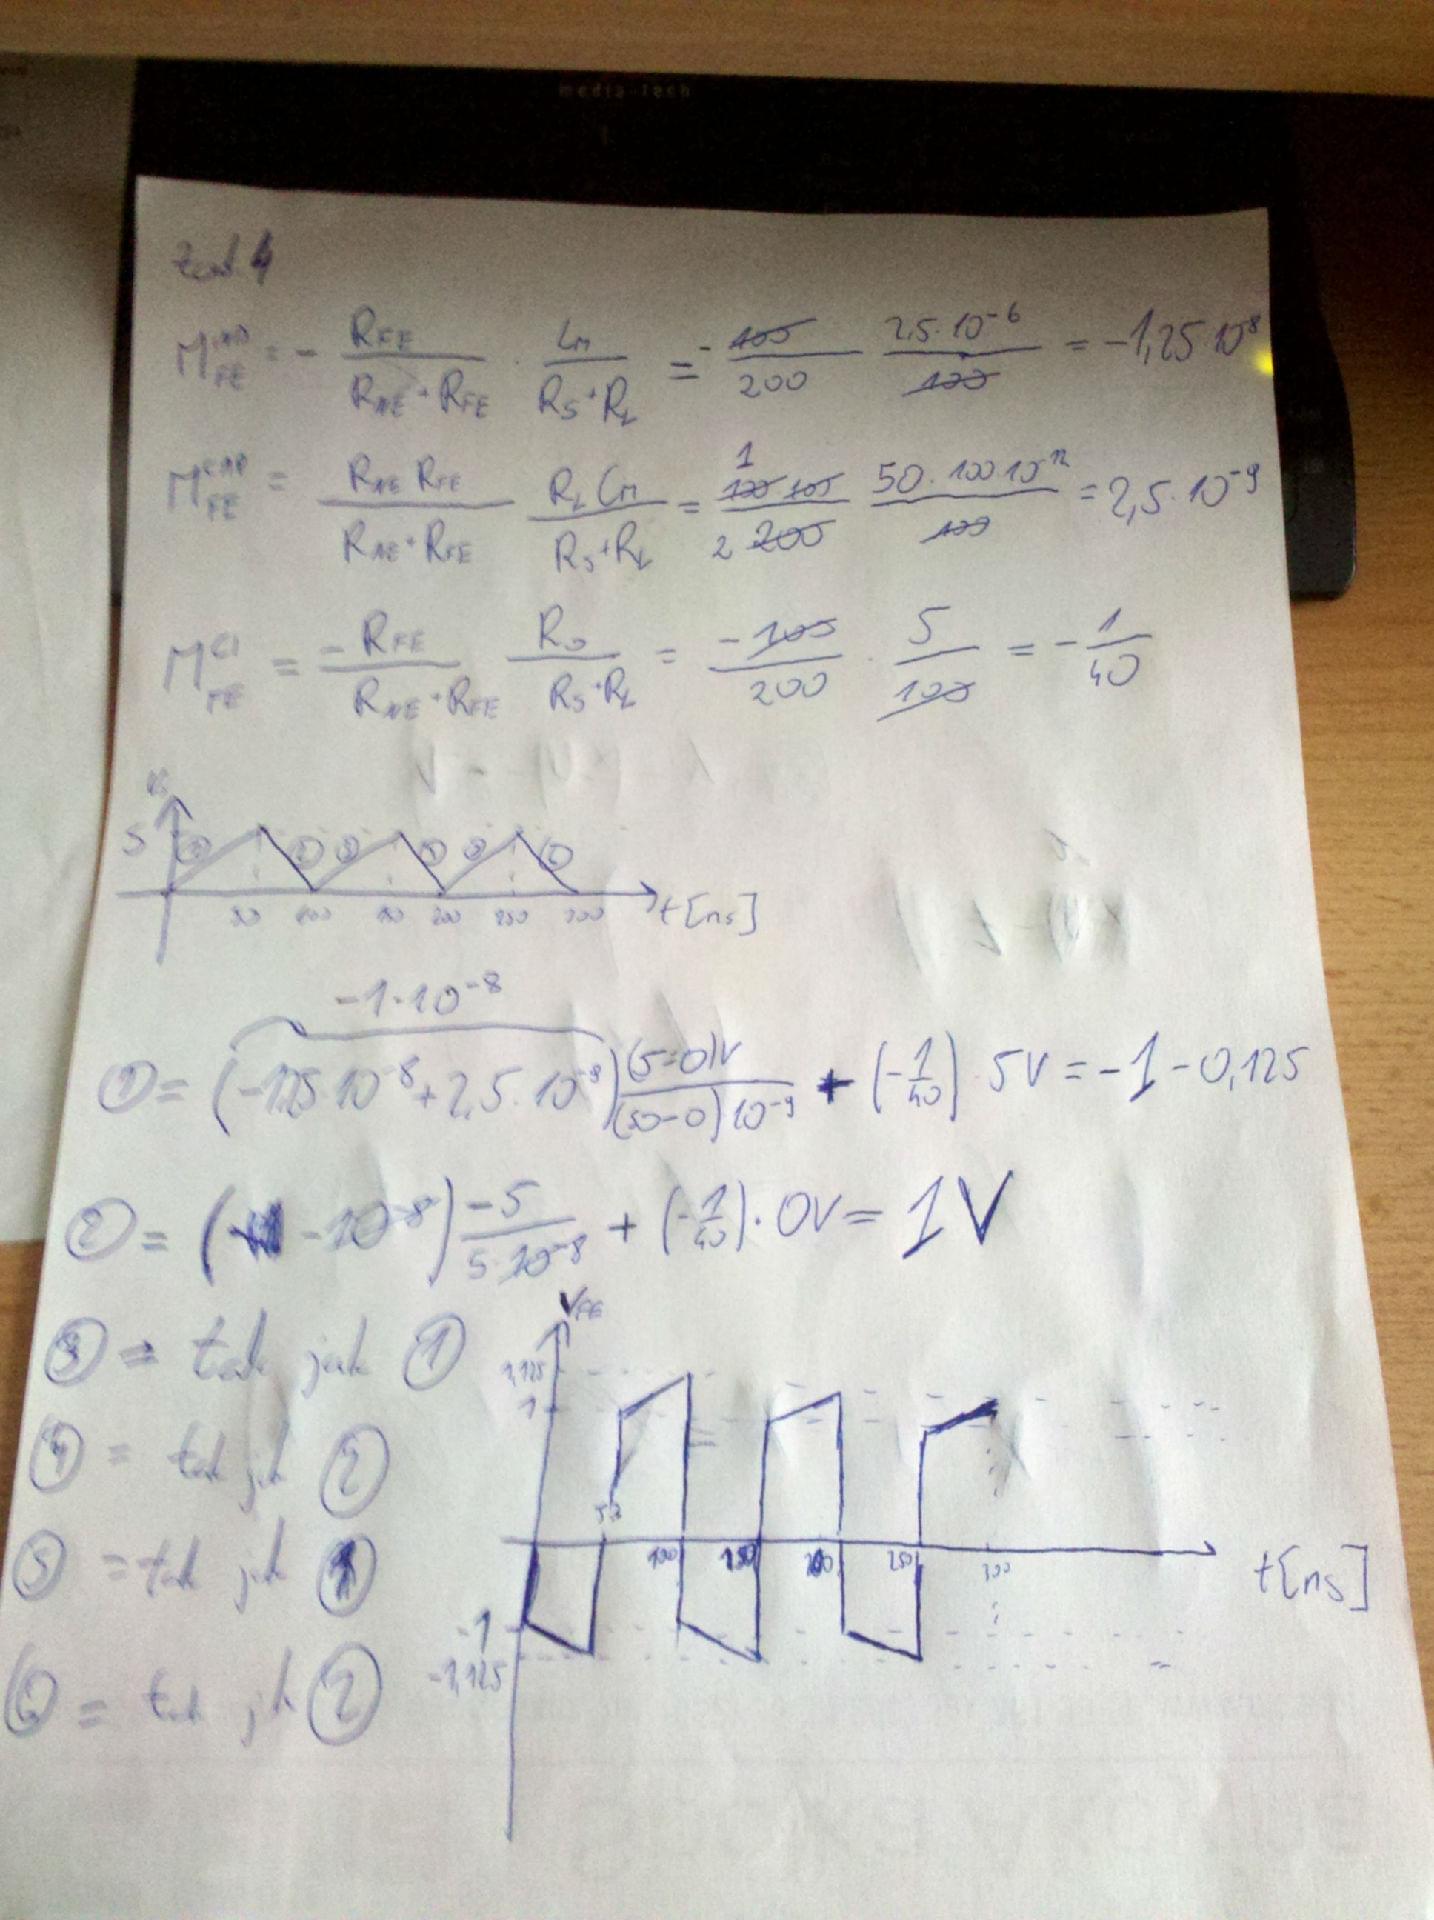 media-tech
zad. 4
M_FE^IND = - R_FE / (R_NE + R_FE) · L_M / (R_S + R_L) = - 100/200 2,5·10^-6 / 100 = -1,25·10^-8
M_FE^CAP = R_NE R_FE / (R_NE + R_FE) R_L C_M / (R_S + R_L) = 1 100 100 / 2 200 50·100·10^-12 / 100 = 2,5·10^-9
M_FE^CI = -R_FE / (R_NE + R_FE) R_0 / (R_S + R_L) = -100/200 · 5/100 = -1/40
5
① ② ③ ④
50 100 200 250 300 t[ns]
-1·10^-8
① = (-1,25·10^-8 + 2,5·10^-9) (5-0)V / (50-0)10^-9 + (-1/40) 5V = -1 - 0,125
② = (-10^-8) -5 / 5·10^-8 + (-1/40)·0V = 1V
③ = tak jak ①
④ = tak jak ②
⑤ = tak jak ①
⑥ = tak jak ②
V_FE
1,125
1
50 100 150 200 250 300 t[ns]
-1
-1,125